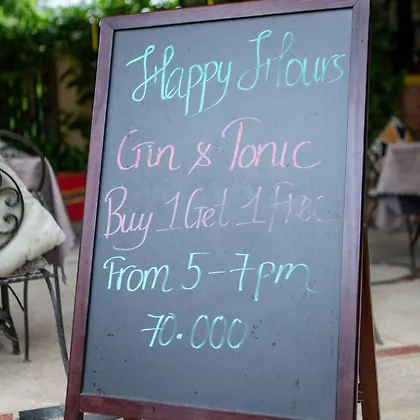 Happy Hours
Gin & Tonic
Buy 1 Get 1 Free
From 5-7pm
70.000